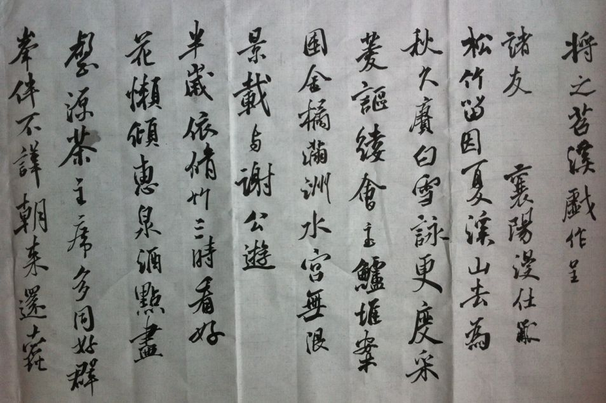 将之苕溪戲作呈
諸友 襄陽漫仕黻
松竹留因夏溪山去為
秋久賡白雪詠更度采
菱謳縷會玉鱸堆案
團金橘滿洲水宮無限
景載与謝公遊
半歲依脩竹三時看好
花懶傾惠泉酒點盡
壑源茶主席多同好群
峯伴不譁朝来還